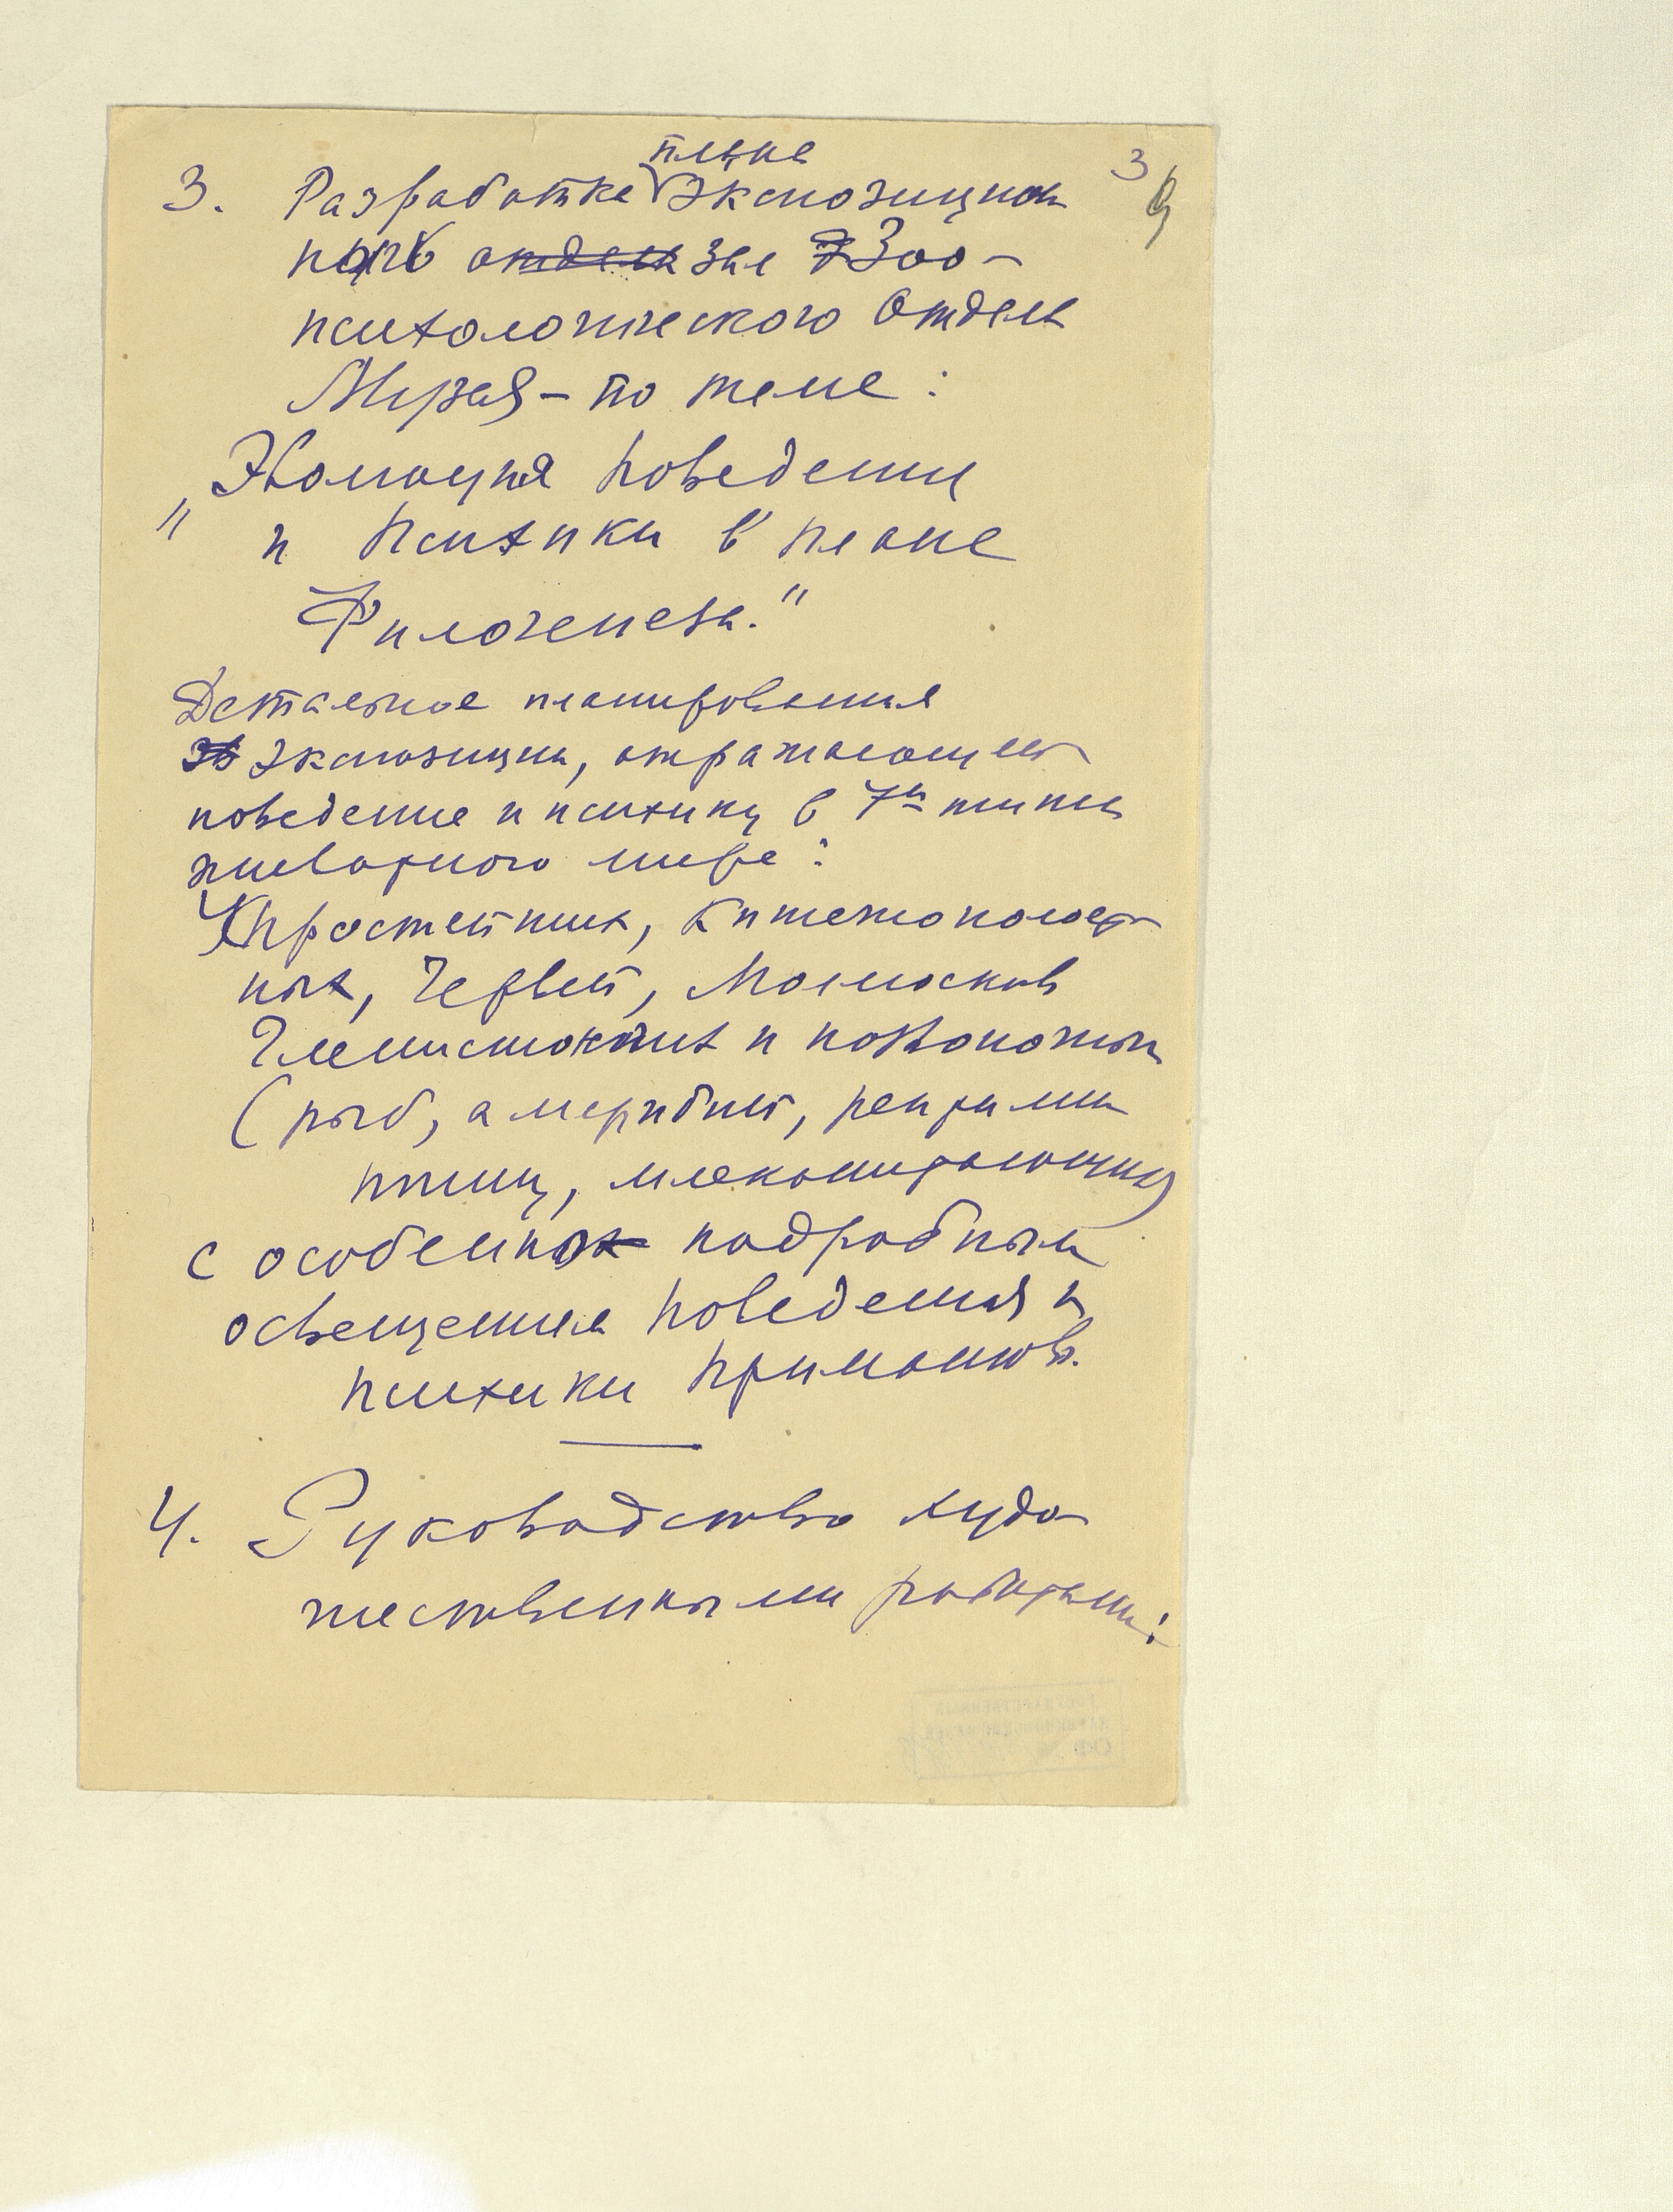 3
9
плана
3. Разработка экспозицион
ного отдела зал Зоо-
психологического Отдела
Музея - по теме:
"Эволюция поведения
и психики в плане
Филогенеза."
Детальное планирования
экспозиции, отражающей
поведение и психику в 7ми типах
животного мира:
Простейших, Кишечнополост
ных, Червей, Моллюсков
Членистоногих и позвоночных
(рыб, амфибий, рептилий
птиц, млекопитающих)
с особенно подробным
освещением поведения и
психики приматов.
4. Руководство худо
жественными работами: